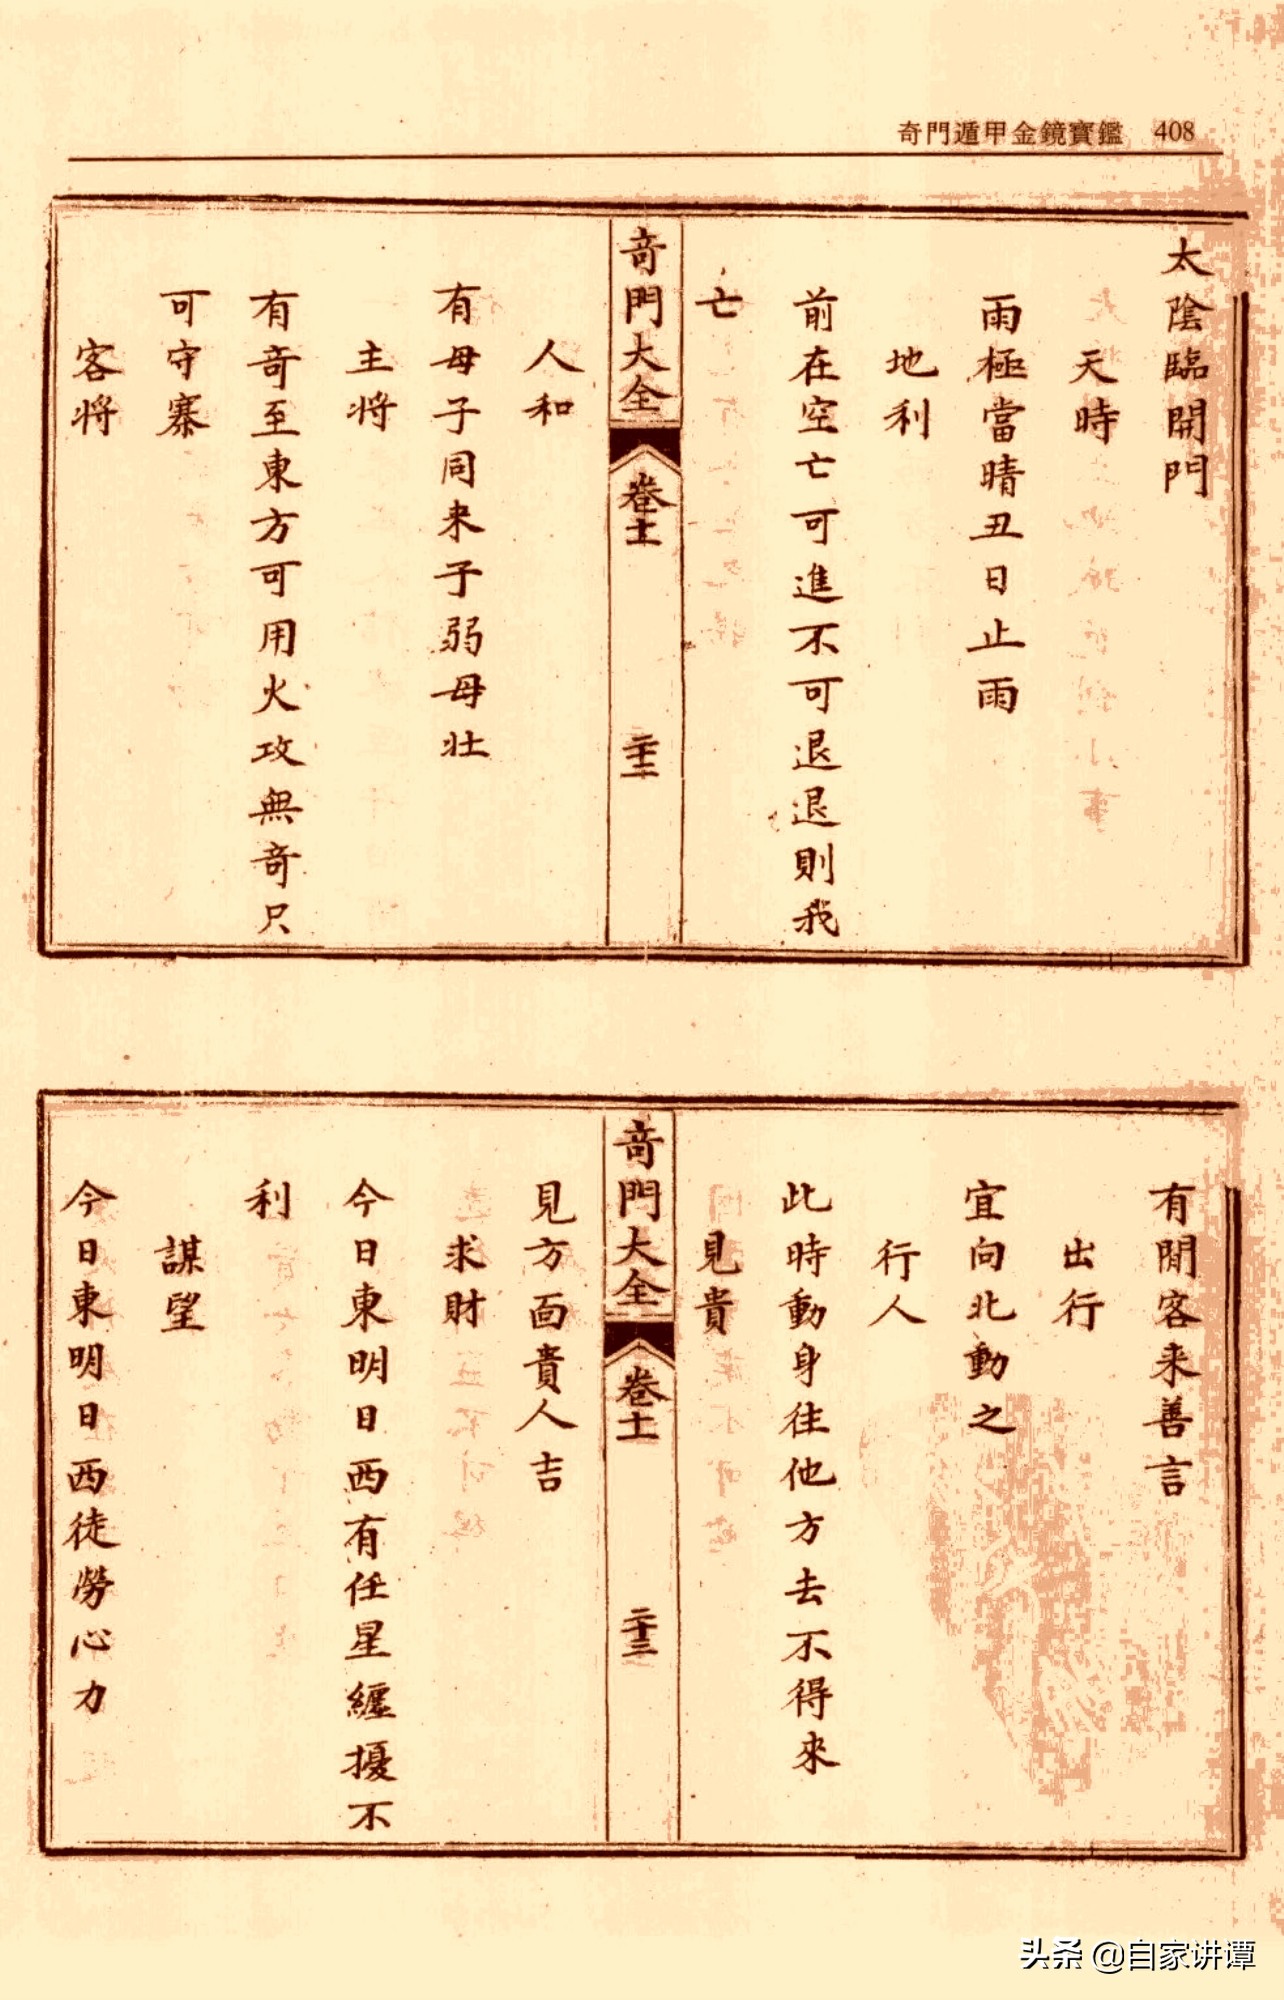 奇門遁甲金鏡寶鑑 408
太陰臨開門
天時
雨極當晴丑日止雨
地利
前在空亡可進不可退退則我
亡
奇門大全 卷十一 二十二
人和
有母子同来子弱母壯
主將
有奇至東方可用火攻無奇只
可守寨
客將
有閒客来善言
出行
宜向北動之
行人
此時動身往他方去不得來
見貴
奇門大全 卷十一 二十三
見方面貴人吉
求財
今日東明日西有任星纏擾不
利
謀望
今日東明日西徒勞心力
头条 @自家讲谭